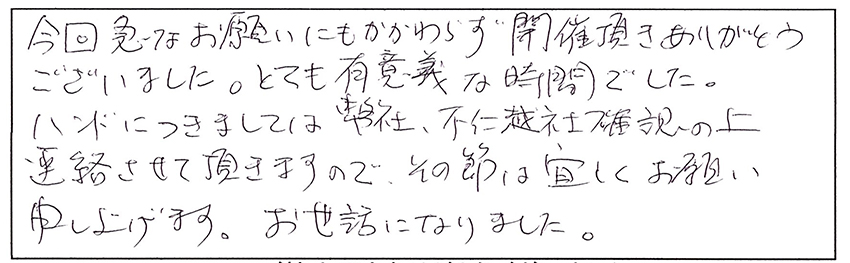 今回急なお願いにもかかわらず開催頂きありがとう
ございました。とても有意義な時間でした。
ハンドにつきましては弊社、不仁越社確認の上
連絡させて頂きますので、その節は宜しくお願い
申し上げます。お世話になりました。